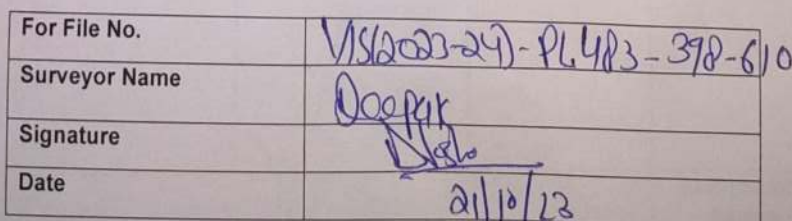 For File No. VIS(2023-24)-PL483-398-610
Surveyor Name Deepak
Signature
Date 21/10/23